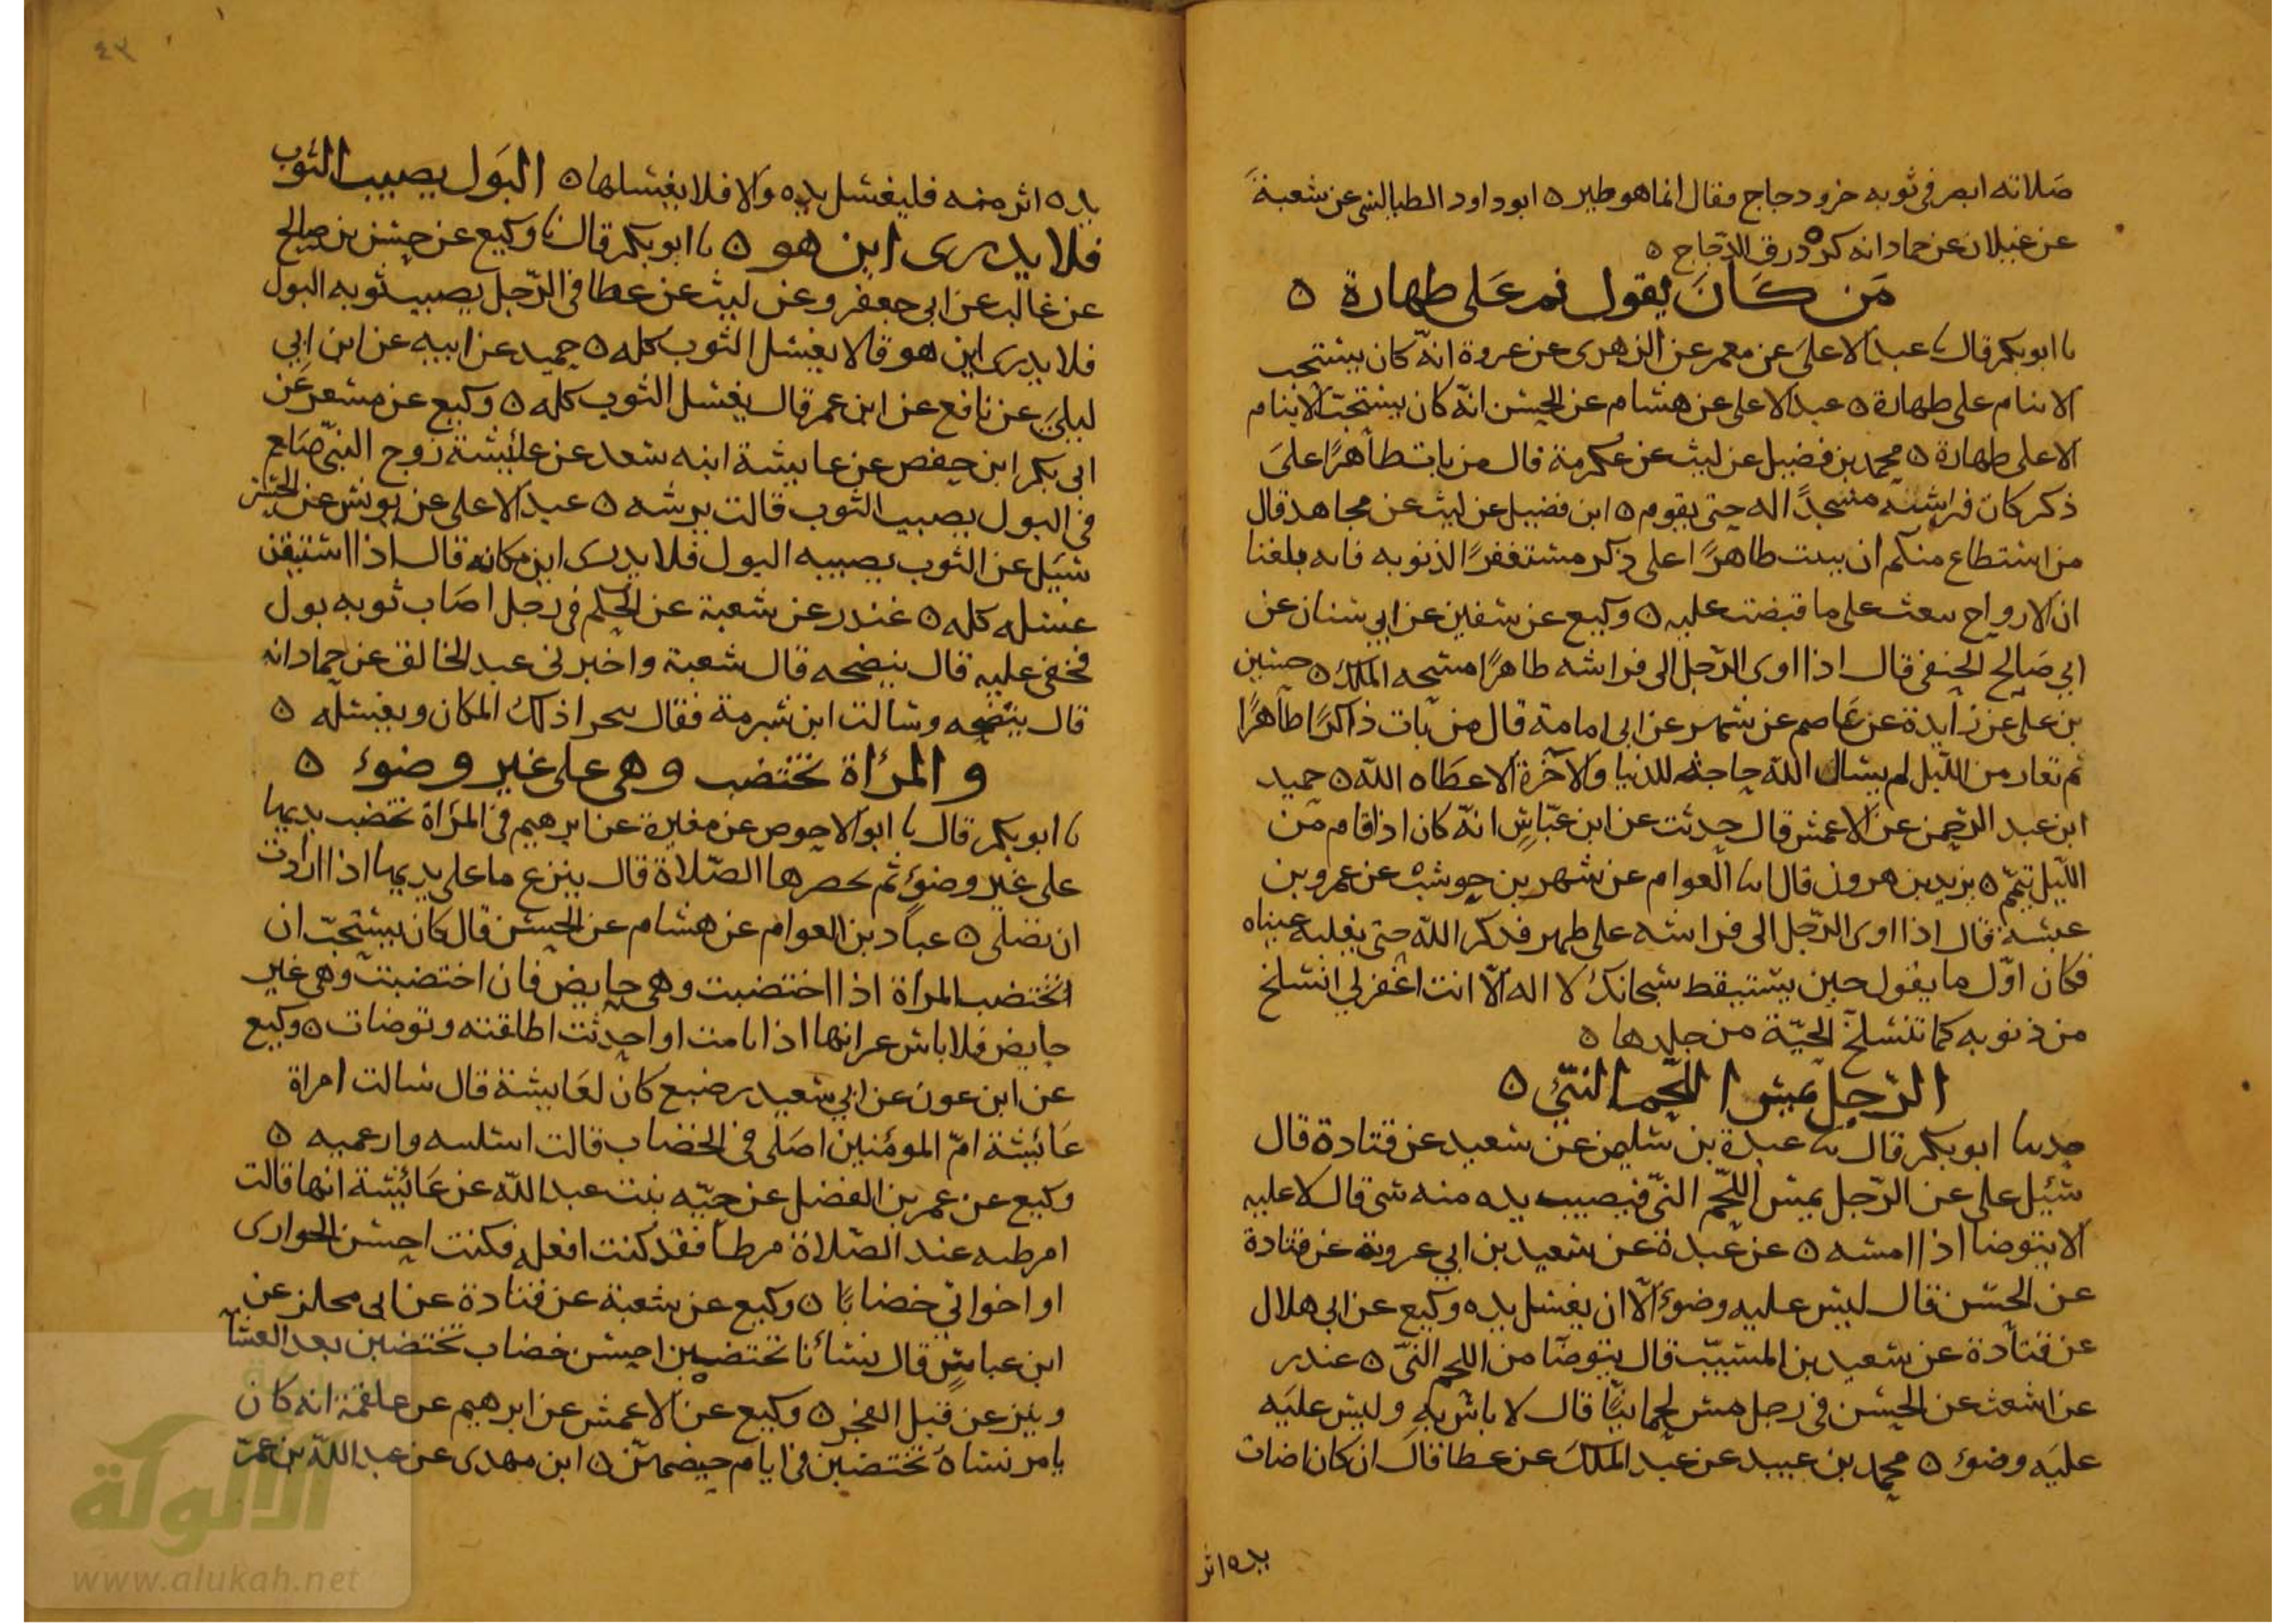 صلاته ابصر في ثوبه خرو دجاج فقال انما هو طير ٥ ابو داود الطيالسي عن شعبة
عن غيلان عن حماد انه كره ذرق الدجاج ٥
من كان يقول نم على طهارة ٥
نا ابو بكر قال نا عبد الاعلى عن معمر عن الزهري عن عروة انه كان يستحب
الا ينام على طهارة ٥ عبد الاعلى عن هشام عن الحسن انه كان يستحب الا ينام
الا على طهارة ٥ محمد بن فضيل عن ليث عن عكرمة قال من بات طاهرا على
ذكر كان فراشه مسجدا له حتى يقوم ٥ ابن فضيل عن ليث عن مجاهد قال
من استطاع منكم ان يبيت طاهرا على ذكر مستغفرا لذنوبه فانه بلغنا
ان الارواح تبعث على ما قبضت عليه ٥ وكيع عن سفين عن ابي سنان عن
ابي صالح الحنفي قال اذا اوى الرجل الى فراشه طاهرا مسحه الملك ٥ حسين
بن علي عن زايدة عن عاصم عن شمر عن ابي امامة قال من بات ذاكرا طاهرا
ثم تعار من الليل لم يسال الله حاجة للدنيا والآخرة الا اعطاه الله ٥ حميد
ابن عبد الرحمن عن الاعمش قال حدثت عن ابن عباس انه كان اذا قام من
الليل تيمم ٥ يزيد بن هرون قال انا العوام عن شهر بن حوشب عن عمرو بن
عبسة قال اذا اوى الرجل الى فراشه على طهر فذكر الله حتى يغلبه عيناه
فكان اول ما يقول حين يستيقظ سبحانك لا اله الا انت اغفر لي انسلخ
من ذنوبه كما تنسلخ الحية من جلدها ٥
الرجل يمس اللحم النيئ ٥
حدثنا ابو بكر قال نا عبدة بن سليمن عن سعيد عن قتادة قال
سئل علي عن الرجل يمس اللحم الني فيصيب يده منه شي قال لا عليه
الا يتوضا اذا امسه ٥ عن عبدة عن سعيد بن ابي عروبة عن قتادة
عن الحسن قال ليس عليه وضوء الا ان يغسل يده وكيع عن ابي هلال
عن قتادة عن سعيد بن المسيب قال يتوضا من اللحم الني ٥ غندر
عن اشعث عن الحسن في رجل مس لحما نيا قال لا باس به وليس عليه
عليه وضوء ٥ محمد بن عبيد عن عبد الملك عن عطا قال ان كان اصاب
يده اثر
٤٣
يده اثر منه فليغسل يده والا فلا يغسلها ٥ البول يصيب الثوب
فلا يدرى اين هو ٥ نا ابو بكر قال نا وكيع عن حسن بن صالح
عن غالب عن ابي جعفر وعن ليث عن عطا في الرجل يصيب ثوبه البول
فلا يدرى اين هو قالا يغسل الثوب كله ٥ حميد عن ابيه عن ابن ابي
ليلى عن نافع عن ابن عمر قال يغسل الثوب كله ٥ وكيع عن مسعر عن
ابي بكر ابن حفص عن عايشة ابنه سعد عن عائشة زوج النبي صلعم
في البول يصيب الثوب قالت يرشه ٥ عبد الاعلى عن يونس عن الحسن
سئل عن الثوب يصيبه البول فلا يدرى اين مكانه قال اذا استيقن
غسله كله ٥ غندر عن شعبة عن الحكم في رجل اصاب ثوبه بول
فخفى عليه قال ينضحه قال شعبة واخبرني عبد الخالق عن حماد انه
قال ينضحه وسالت ابن شبرمة فقال يتحرا ذلك المكان ويغسله ٥
والمرأة تختضب وهي على غير وضوء ٥
نا ابو بكر قال نا ابو الاحوص عن مغيرة عن ابرهيم في المرأة تخضب يديها
على غير وضوء ثم تحضرها الصلاة قال ينزع ما على يديها اذا ارادت
ان تصلى ٥ عباد بن العوام عن هشام عن الحسن قال كان يستحب ان
تختضب المرأة اذا اختضبت وهي حايض فان اختضبت وهي غير
حايض فلا باس غير انها اذا نامت او احدثت اطلقته وتوضات ٥ وكيع
عن ابن عون عن ابي سعيد رضيع كان لعايشة قال سالت امراة
عائشة ام المومنين اصلى في الخضاب قالت اسلتيه وارغميه ٥
وكيع عن عمر بن الفضل عن حبه بنت عبد الله عن عائشة انها قالت
امرطيه عند الصلاة مرطا فقد كنت افعله فكنت احسن الجواري
او اخواتي خضابا ٥ وكيع عن شعبة عن قتادة عن ابي مجلز عن
ابن عباس قال نساؤنا تختضبن احسن خضاب تختضبن بعد العشا
وينزعن قبل الفجر ٥ وكيع عن الاعمش عن ابرهيم عن علقمة انه كان
يامر نساه تختضبن في ايام حيضهن ٥ ابن مهدي عن عبد الله بن عمر
الألوكة
www.alukah.net